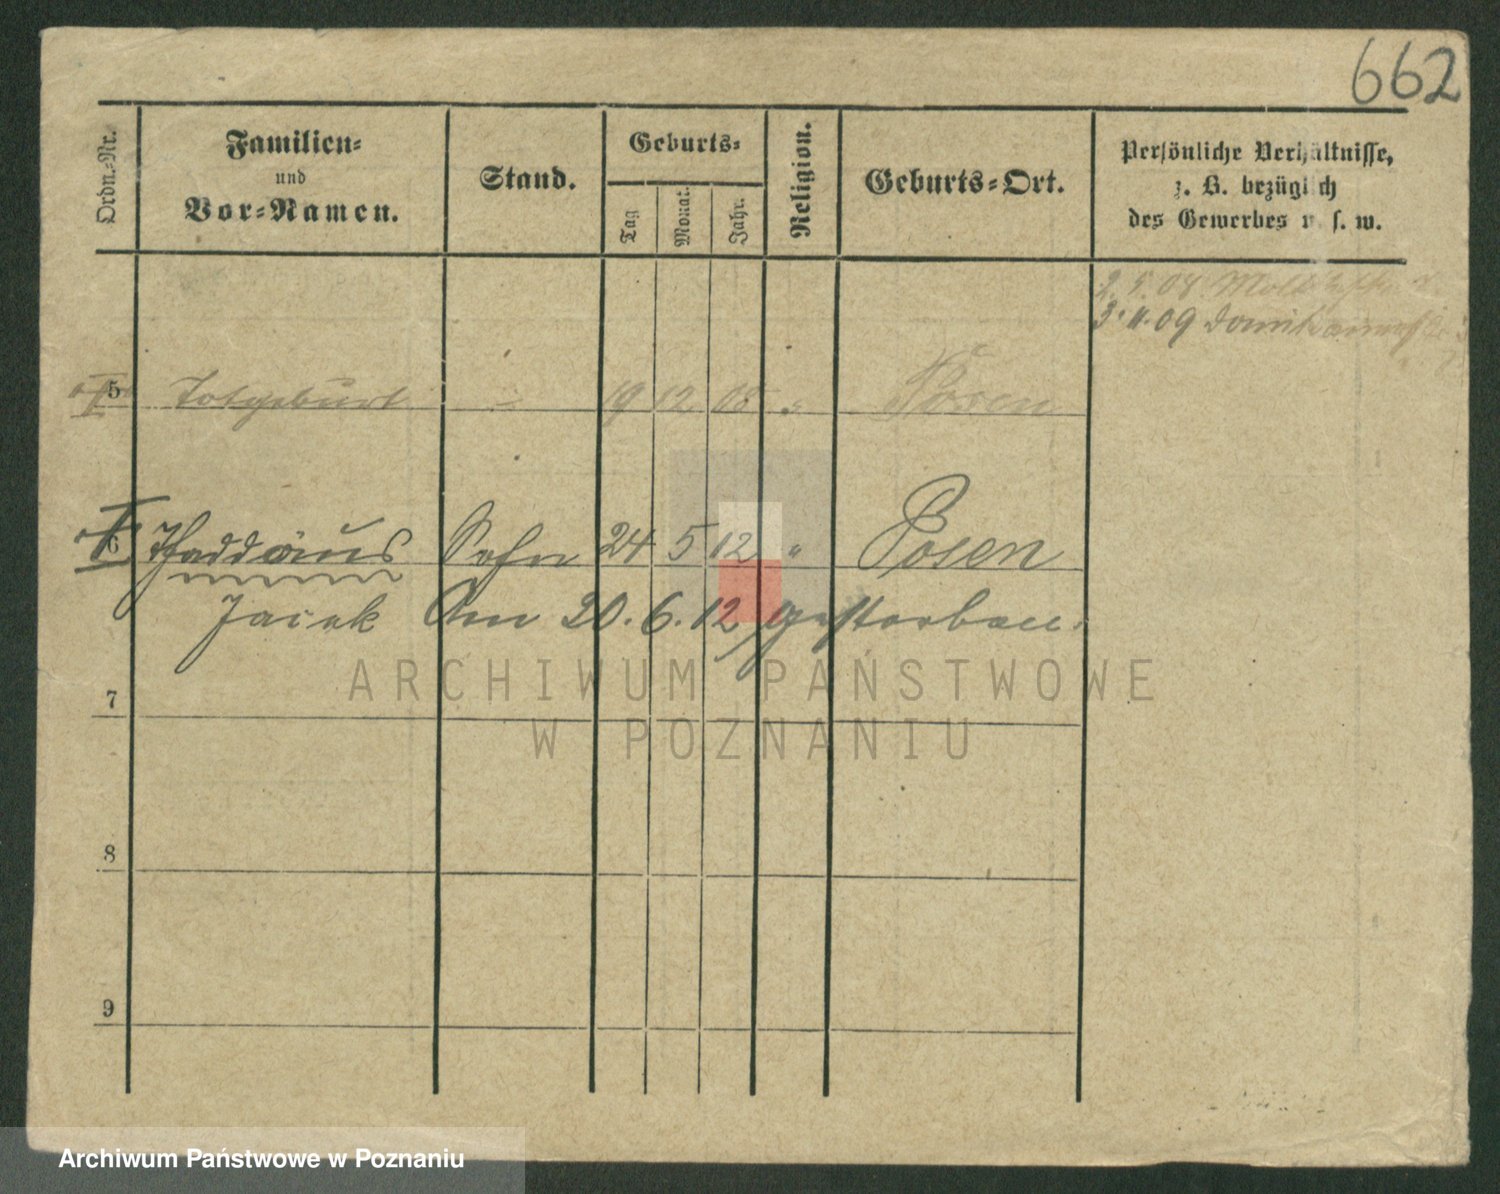 662
Ordn.-Nr.
Familien-
und
Vor-Namen.
Stand.
Geburts-
Tag
Monat.
Jahr.
Religion.
Geburts-Ort.
Persönliche Verhältnisse,
z. B. bezüglich
des Gewerbes u. s. w.
3. 11. 09
5 Totgeburt 19 12 08 " Posen
6 Thaddäus Sohn 24 5 12 " Posen
Jacek Am 20. 6. 12 gestorben.
7
8
9
ARCHIWUM PAŃSTWOWE
W POZNANIU
Archiwum Państwowe w Poznaniu